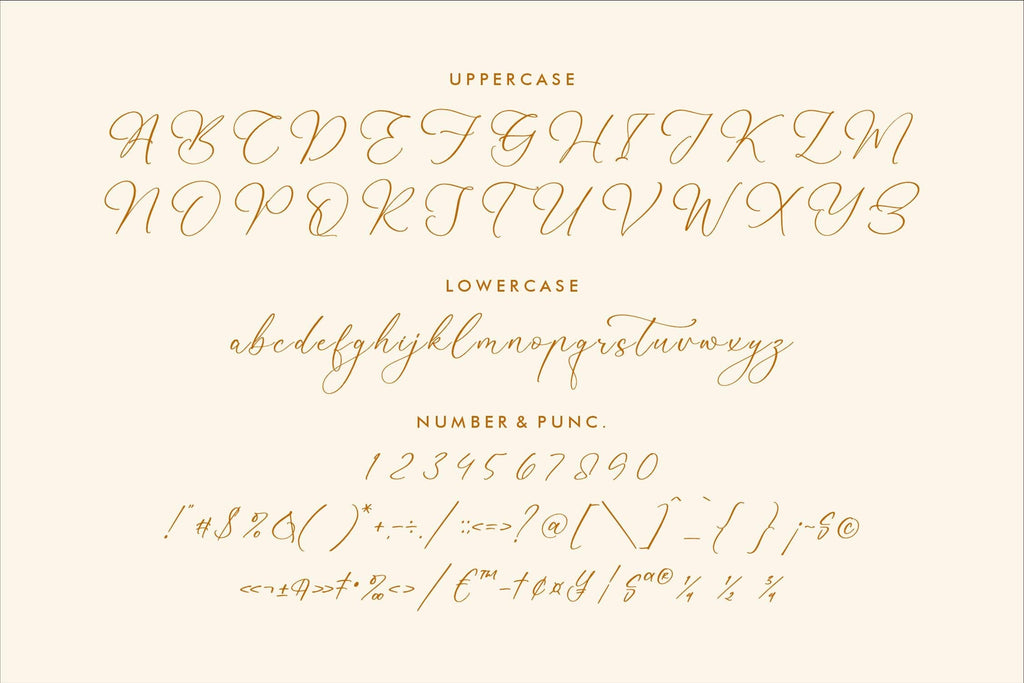 UPPERCASE
A B C D E F G H I J K L M
N O P Q R S T U V W X Y Z
LOWERCASE
abcdefghijklmnopqrstuvwxyz
NUMBER & PUNC.
1 2 3 4 5 6 7 8 9 0
!"#$%&()*+,-÷./:;<=>?@[\]^_`{}¡~S©
««¬±A»»‡•‰<>/€™–†¢¤¥¦§ª®¼ ½ ¾